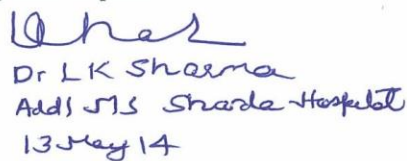 Dr LK Sharma
Addl MS Sharda Hospital
13 May 14